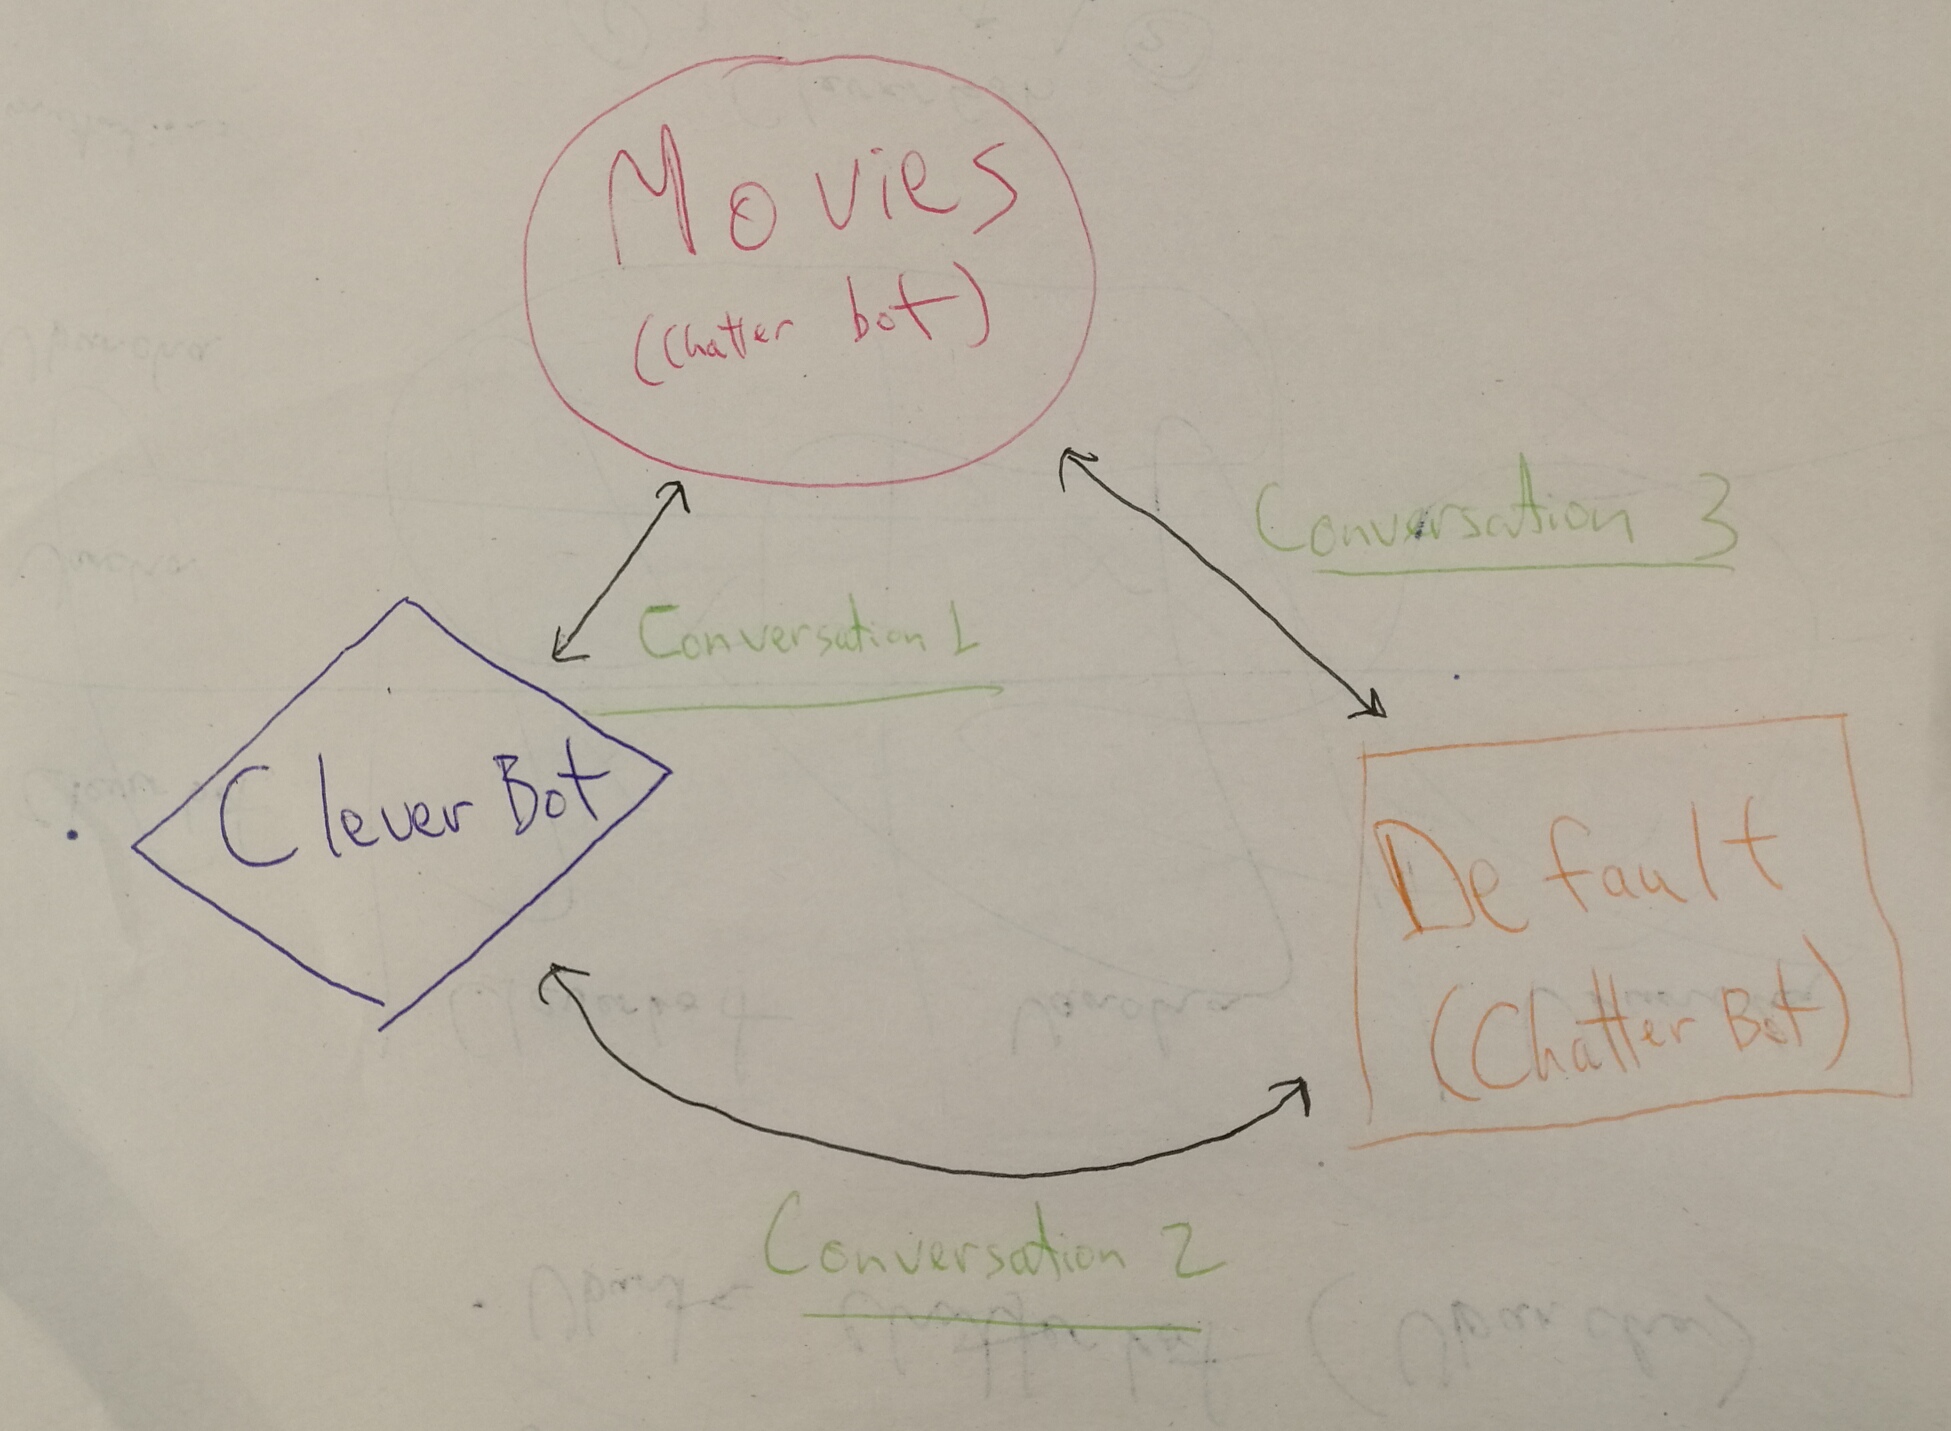 Movies
(Chatter bot)
Conversation 3
Conversation 1
Clever Bot
Default
(Chatter Bot)
Conversation 2